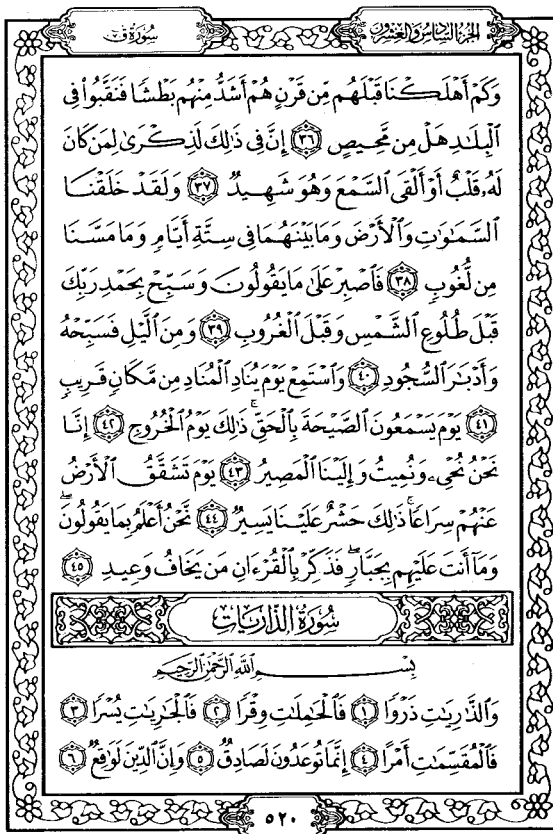 سُورَةُ قٓ
الجُزْءُ السَّادِسُ وَالعِشْرُونَ
وَكَمْ أَهْلَكْنَا قَبْلَهُم مِّن قَرْنٍ هُمْ أَشَدُّ مِنْهُم بَطْشًا فَنَقَّبُوا۟ فِى
ٱلْبِلَٰدِ هَلْ مِن مَّحِيصٍ ٣٦ إِنَّ فِى ذَٰلِكَ لَذِكْرَىٰ لِمَن كَانَ
لَهُۥ قَلْبٌ أَوْ أَلْقَى ٱلسَّمْعَ وَهُوَ شَهِيدٌ ٣٧ وَلَقَدْ خَلَقْنَا
ٱلسَّمَٰوَٰتِ وَٱلْأَرْضَ وَمَا بَيْنَهُمَا فِى سِتَّةِ أَيَّامٍ وَمَا مَسَّنَا
مِن لُّغُوبٍ ٣٨ فَٱصْبِرْ عَلَىٰ مَا يَقُولُونَ وَسَبِّحْ بِحَمْدِ رَبِّكَ
قَبْلَ طُلُوعِ ٱلشَّمْسِ وَقَبْلَ ٱلْغُرُوبِ ٣٩ وَمِنَ ٱلَّيْلِ فَسَبِّحْهُ
وَأَدْبَٰرَ ٱلسُّجُودِ ٤٠ وَٱسْتَمِعْ يَوْمَ يُنَادِ ٱلْمُنَادِ مِن مَّكَانٍ قَرِيبٍ
٤١ يَوْمَ يَسْمَعُونَ ٱلصَّيْحَةَ بِٱلْحَقِّ ۚ ذَٰلِكَ يَوْمُ ٱلْخُرُوجِ ٤٢ إِنَّا
نَحْنُ نُحْىِۦ وَنُمِيتُ وَإِلَيْنَا ٱلْمَصِيرُ ٤٣ يَوْمَ تَشَقَّقُ ٱلْأَرْضُ
عَنْهُمْ سِرَاعًا ۚ ذَٰلِكَ حَشْرٌ عَلَيْنَا يَسِيرٌ ٤٤ نَّحْنُ أَعْلَمُ بِمَا يَقُولُونَ ۖ
وَمَآ أَنتَ عَلَيْهِم بِجَبَّارٍ ۖ فَذَكِّرْ بِٱلْقُرْءَانِ مَن يَخَافُ وَعِيدِ ٤٥
سُورَةُ الذَّارِيَاتِ
بِسْمِ ٱللَّهِ ٱلرَّحْمَٰنِ ٱلرَّحِيمِ
وَٱلذَّٰرِيَٰتِ ذَرْوًا ١ فَٱلْحَٰمِلَٰتِ وِقْرًا ٢ فَٱلْجَٰرِيَٰتِ يُسْرًا ٣
فَٱلْمُقَسِّمَٰتِ أَمْرًا ٤ إِنَّمَا تُوعَدُونَ لَصَادِقٌ ٥ وَإِنَّ ٱلدِّينَ لَوَٰقِعٌ ٦
٥٢٠